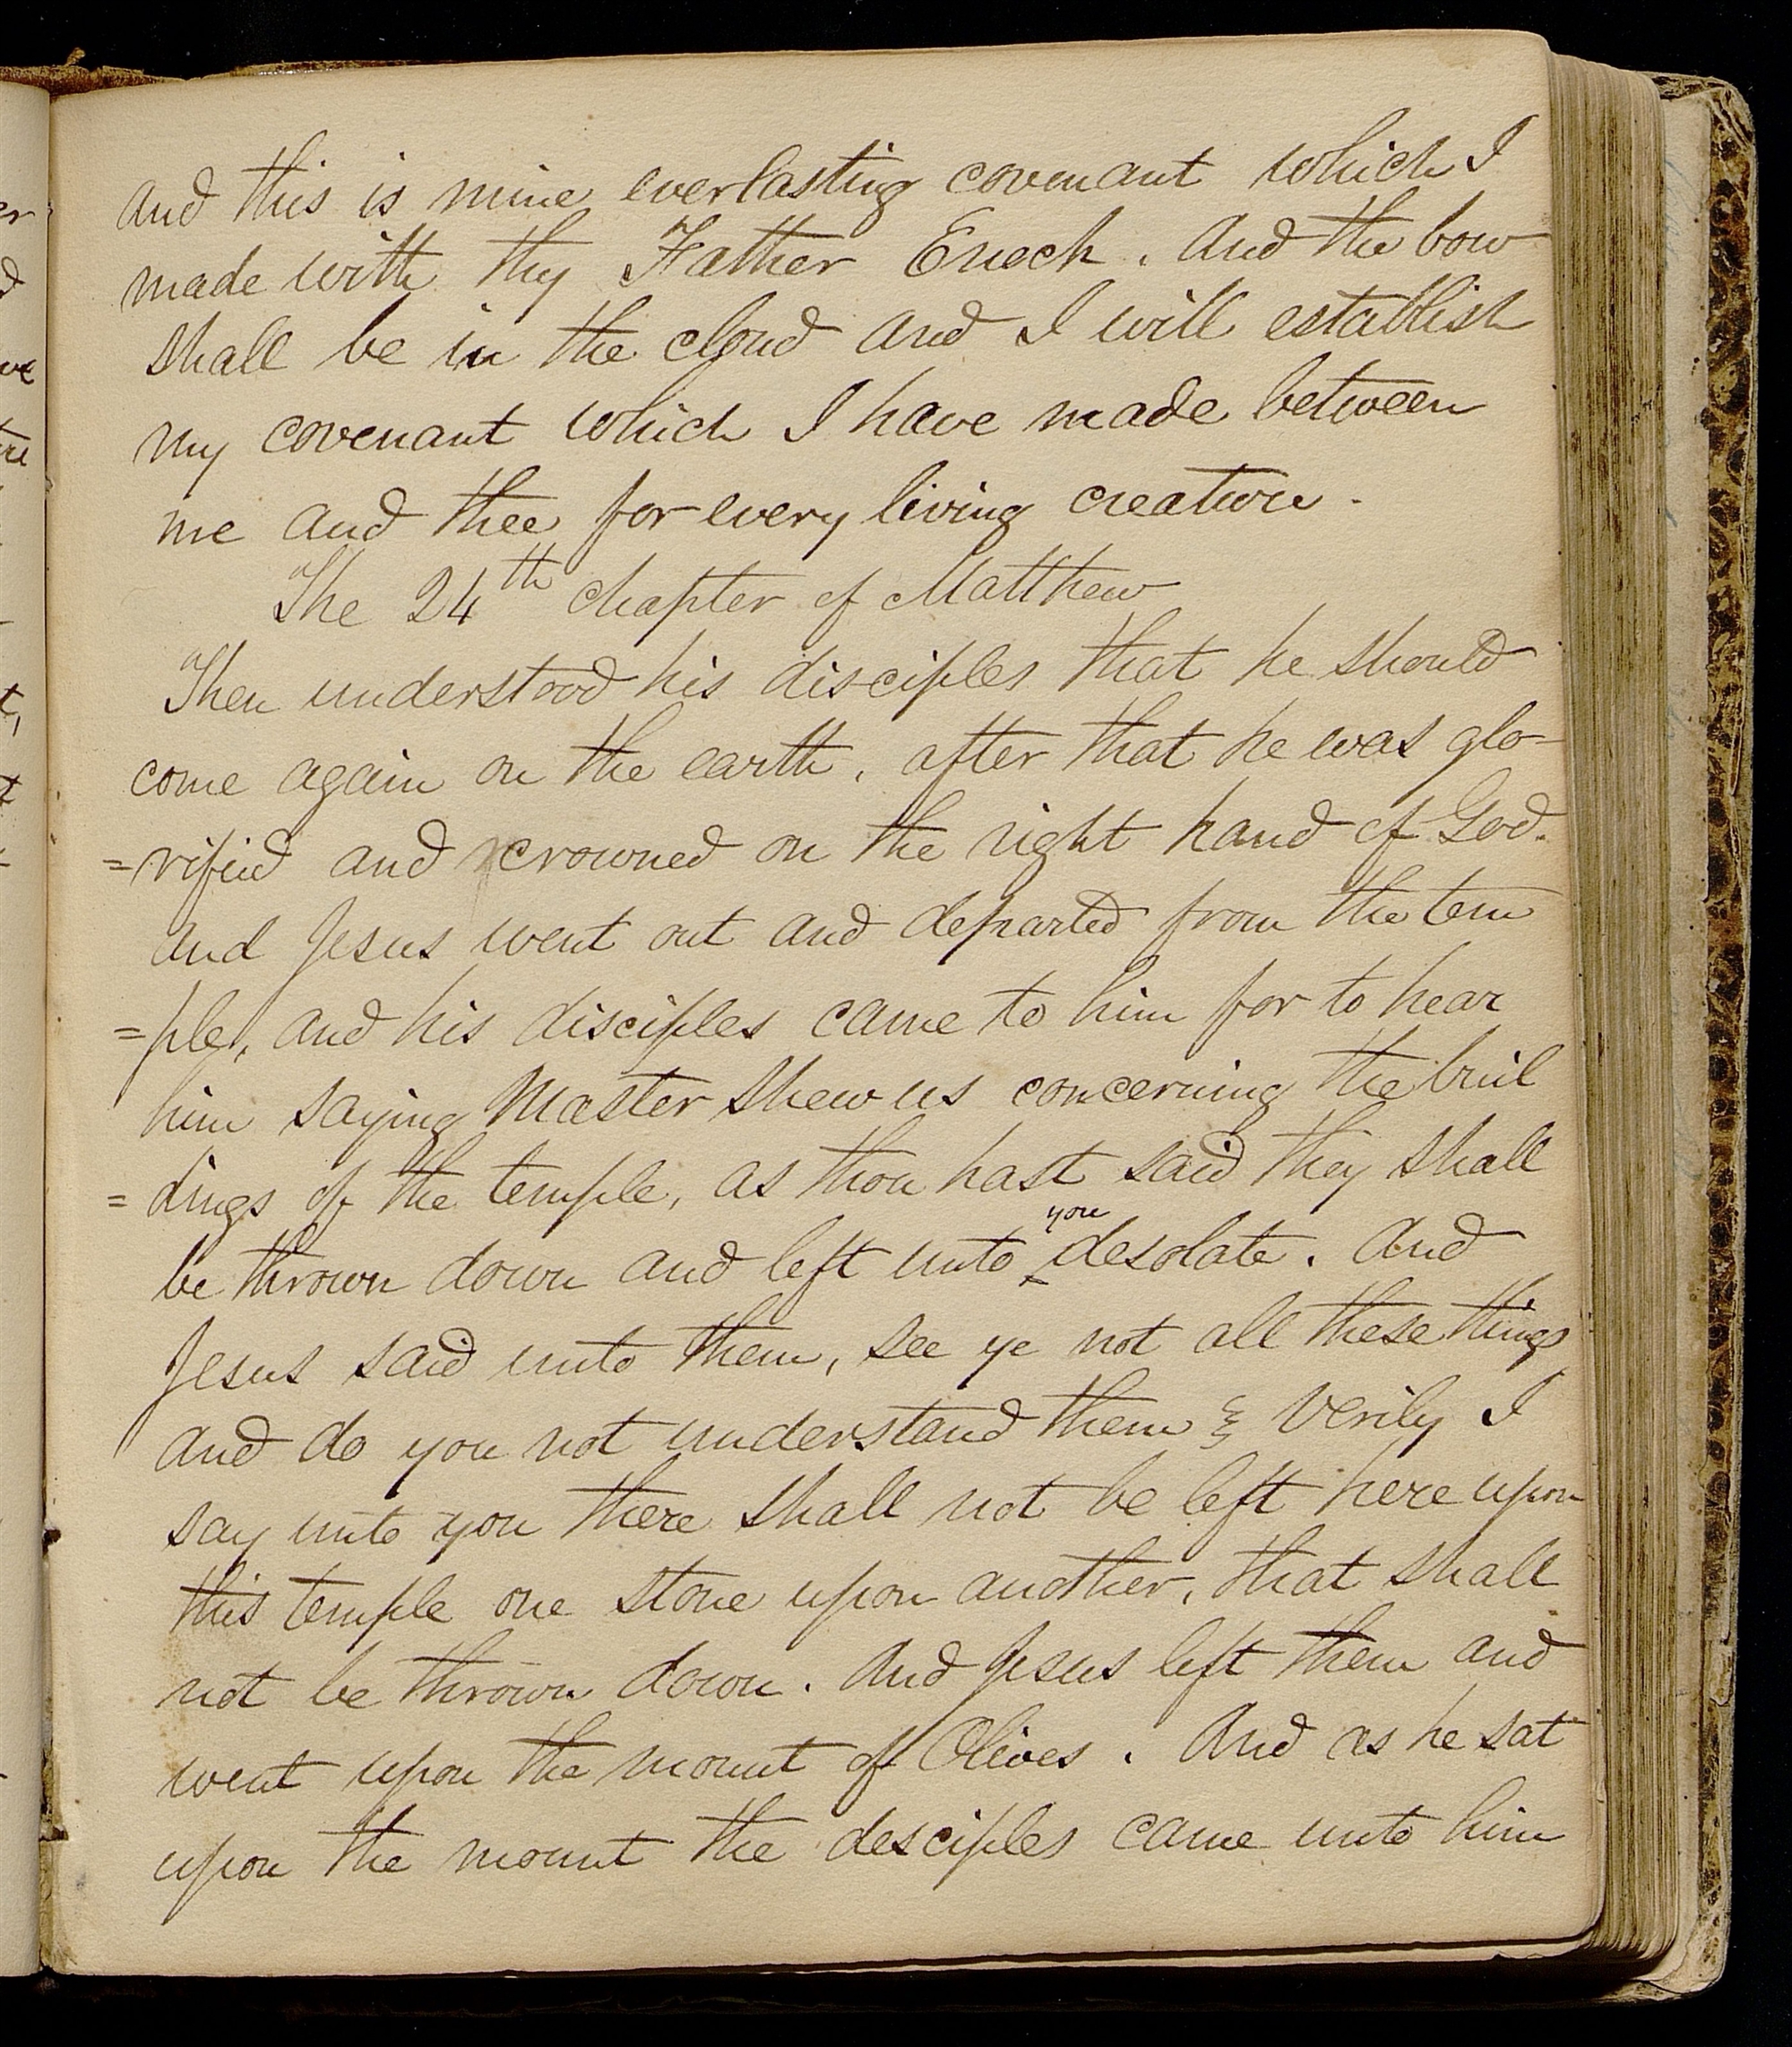 and this is mine everlasting covenant which I
made with thy Father Enoch. And the bow
shall be in the cloud and I will establish
my covenant which I have made between
me and thee for every living creature.
The 24th chapter of Matthew
Then understood his disciples that he should
come again on the earth, after that he was glo-
=rified and crowned on the right hand of God.
and Jesus went out and departed from the tem
=ple, and his disciples came to him for to hear
him saying Master shew us concerning the buil
=dings of the temple, as thou hast said they shall
be thrown down and left unto you desolate. And
Jesus said unto them, see ye not all these things
and do you not understand them & Verily I
say unto you there shall not be left here upon
this temple one stone upon another, that shall
not be thrown down. And Jesus left them and
went upon the mount of Olives. And as he sat
upon the mount the desciples came unto him